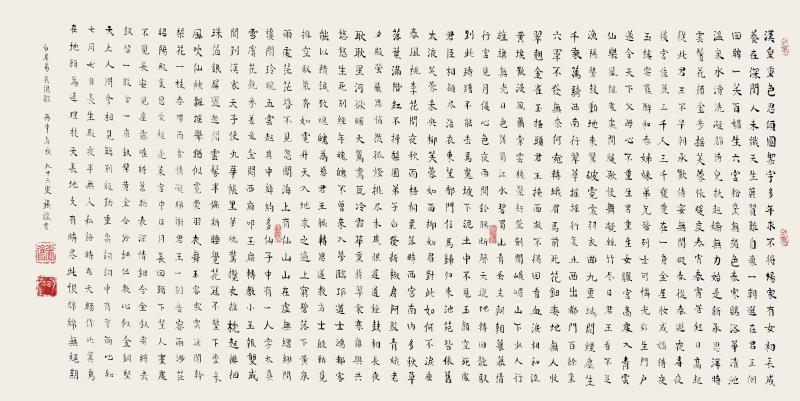 漢皇重色思傾國御宇多年求不得楊家有女初長成
養在深閨人未識天生麗質難自棄一朝選在君王側
回眸一笑百媚生六宮粉黛無顏色春寒賜浴華清池
溫泉水滑洗凝脂侍兒扶起嬌無力始是新承恩澤時
雲鬢花顏金步搖芙蓉帳暖度春宵春宵苦短日高起
從此君王不早朝承歡侍宴無閑暇春從春遊夜專夜
後宮佳麗三千人三千寵愛在一身金屋妝成嬌侍夜
玉樓宴罷醉和春姊妹弟兄皆列士可憐光彩生門戶
遂令天下父母心不重生男重生女驪宮高處入青雲
仙樂風飄處處聞緩歌慢舞凝絲竹盡日君王看不足
漁陽鼙鼓動地來驚破霓裳羽衣曲九重城闕煙塵生
千乘萬騎西南行翠華搖搖行復止西出都門百餘里
六軍不發無奈何宛轉蛾眉馬前死花鈿委地無人收
翠翹金雀玉搔頭君王掩面救不得回看血淚相和流
黃埃散漫風蕭索雲棧縈紆登劍閣峨嵋山下少人行
旌旗無光日色薄蜀江水碧蜀山青聖主朝朝暮暮情
行宮見月傷心色夜雨聞鈴腸斷聲天旋地轉回龍馭
到此躊躇不能去馬嵬坡下泥土中不見玉顏空死處
君臣相顧盡沾衣東望都門信馬歸歸來池苑皆依舊
太液芙蓉未央柳芙蓉如面柳如眉對此如何不淚垂
春風桃李花開夜秋雨梧桐葉落時西宮南內多秋草
落葉滿階紅不掃梨園弟子白發新椒房阿監青娥老
夕殿螢飛思悄然孤燈挑盡未成眠遲遲鐘鼓初長夜
耿耿星河欲曙天鴛鴦瓦冷霜華重翡翠衾寒誰與共
悠悠生死別經年魂魄不曾來入夢臨邛道士鴻都客
能以精誠致魂魄為感君王輾轉思遂教方士殷勤覓
排空馭氣奔如電升天入地求之遍上窮碧落下黃泉
兩處茫茫皆不見忽聞海上有仙山山在虛無縹緲間
樓閣玲瓏五雲起其中綽約多仙子中有一人字太真
雪膚花貌參差是金闕西廂叩玉扃轉教小玉報雙成
聞到漢家天子使九華帳里夢魂驚攬衣推枕起徘徊
珠箔銀屏迤邐開雲鬢半偏新睡覺花冠不整下堂來
風吹仙袂飄颻舉猶似霓裳羽衣舞玉容寂寞淚闌幹
梨花一枝春帶雨含情凝睇謝君王一別音容兩渺茫
昭陽殿裏恩愛絕蓬萊宮中日月長回頭下望人寰處
不見長安見塵霧唯將舊物表深情鈿合金釵寄將去
釵留一股合一扇釵擘黃金合分鈿但教心似金鈿堅
天上人間會相見臨別殷勤重寄詞詞中有誓兩心知
七月七日長生殿夜半無人私語時在天願作比翼鳥
在地願為連理枝天長地久有時盡此恨綿綿無絕期
白居易長恨歌 丙申年秋 九十六叟